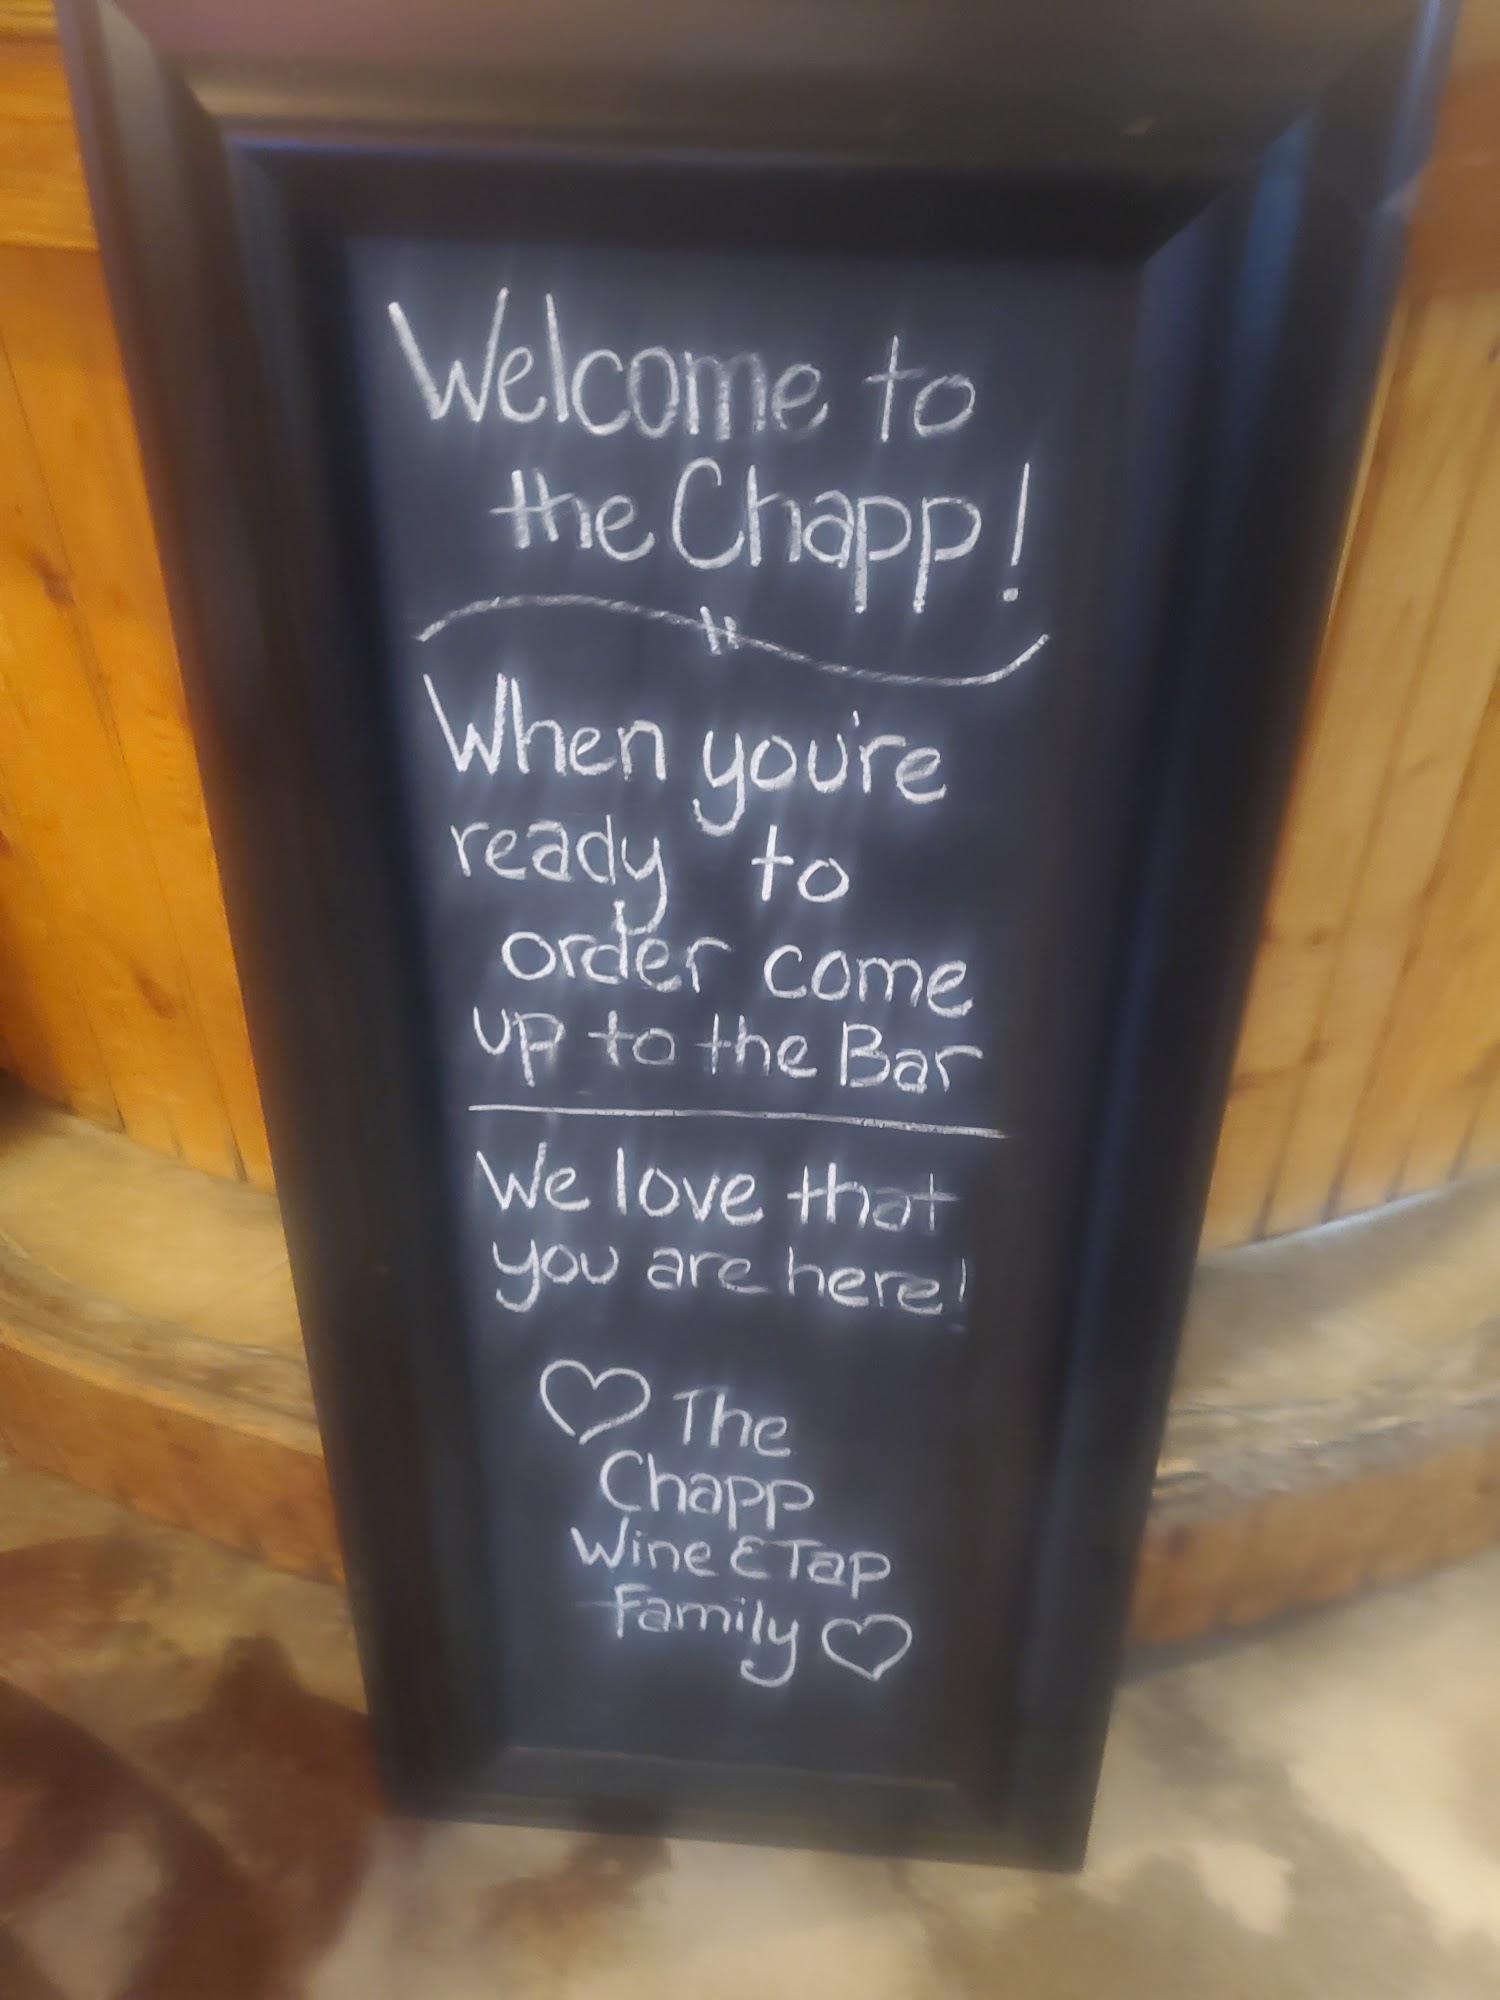 Welcome to
the Chapp!
When you're
ready to
order come
up to the Bar
We love that
you are here!
♡ The
Chapp
Wine & Tap
Family ♡